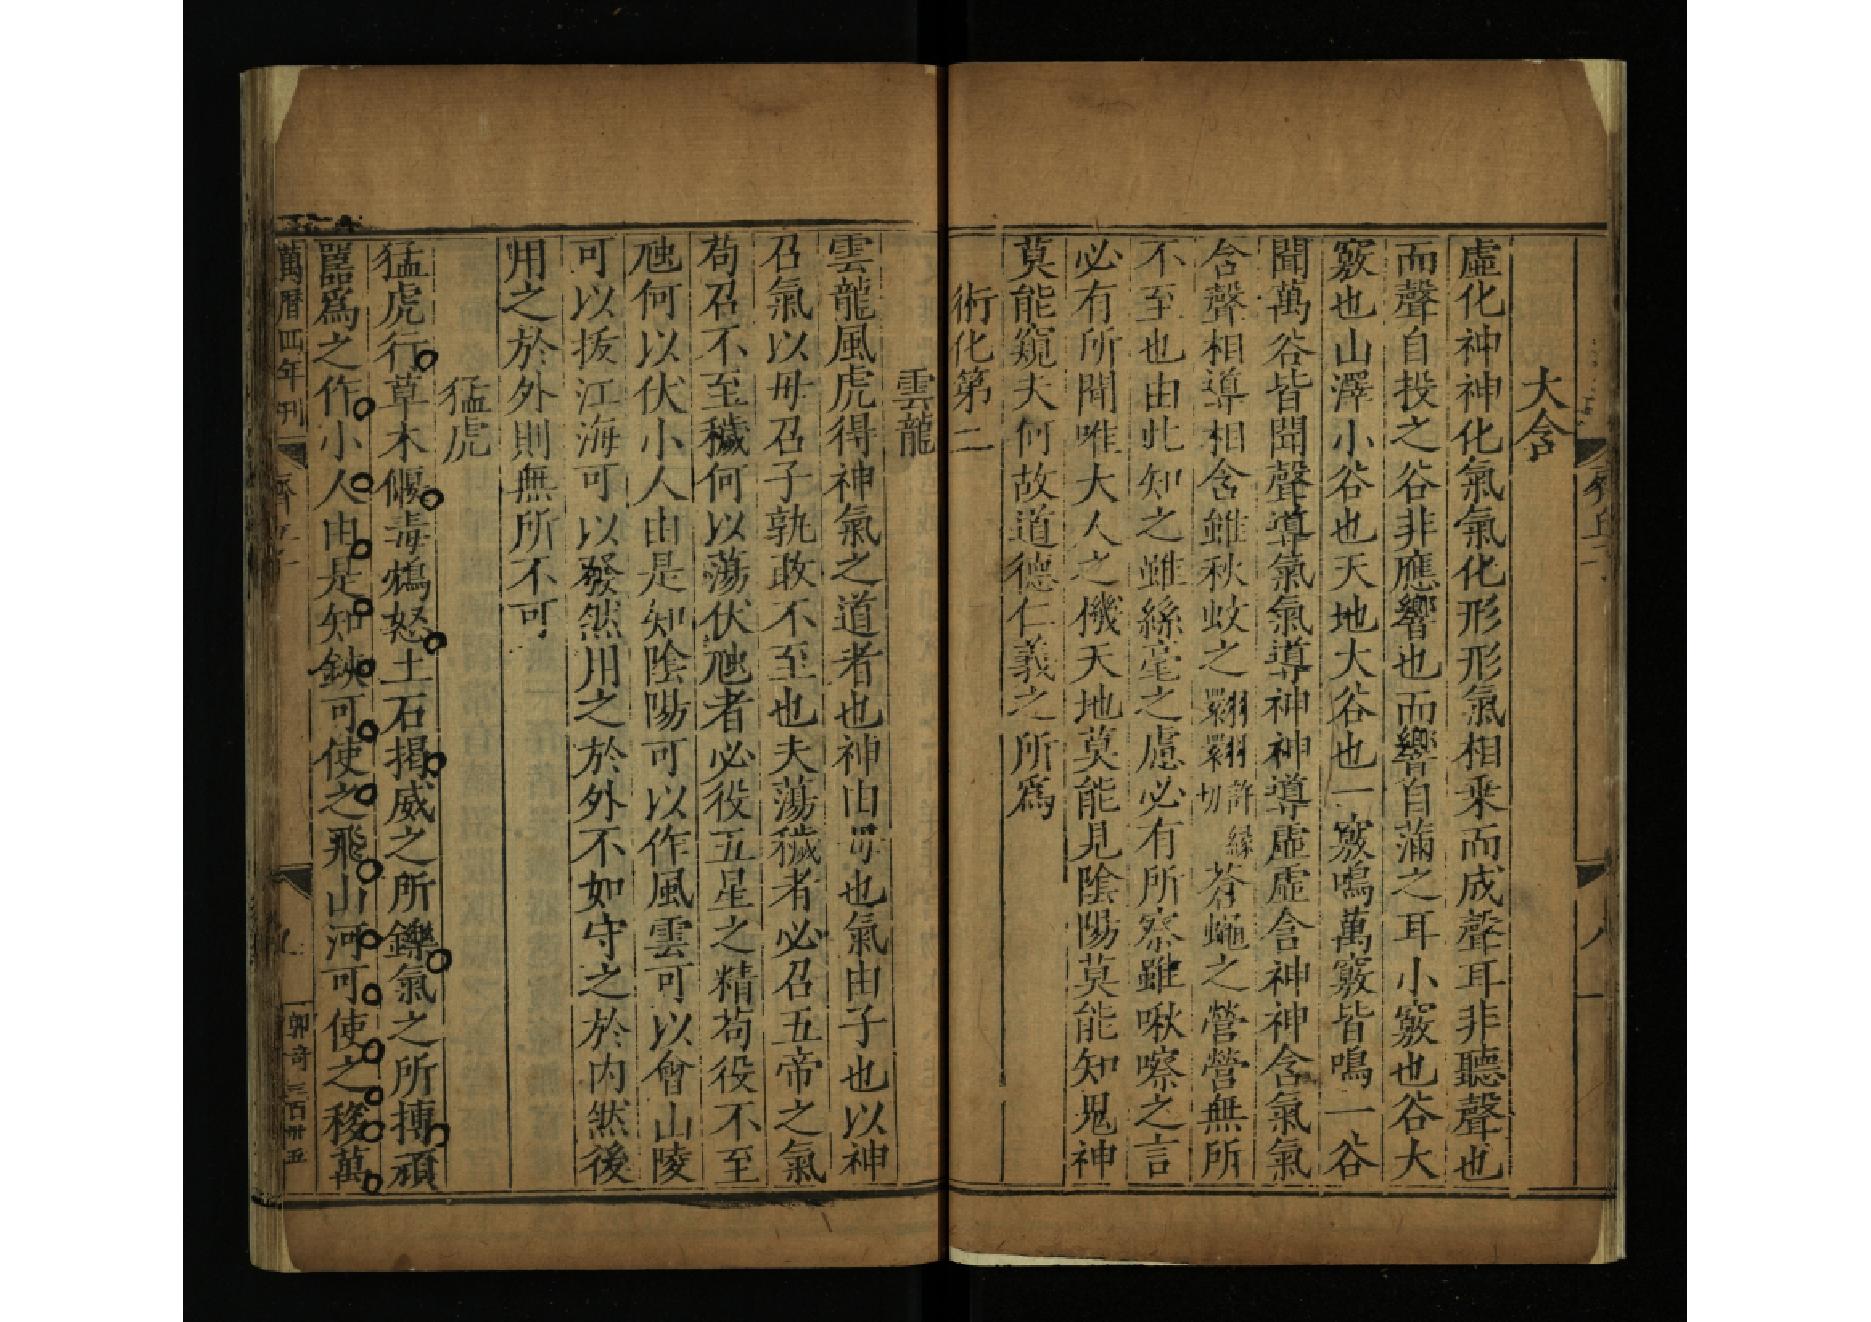 大含
虛化神神化氣氣化形形氣相乘而成聲耳非聽聲也
而聲自投之谷非應響也而響自滿之耳小竅也谷大
竅也山澤小谷也天地大谷也一竅鳴萬竅皆鳴一谷
聞萬谷皆聞聲導氣氣導神神導虛虛含神神含氣氣
含聲相導相含雖秋蚊之翾翾許緣切蒼蠅之營營無所
不至也由此知之雖絲毫之慮必有所察雖啾嚓之言
必有所聞唯大人之機天地莫能見陰陽莫能知鬼神
莫能窺夫何故道德仁義之所爲
術化第二
雲龍
雲龍風虎得神氣之道者也神由母也氣由子也以神
召氣以母召子孰敢不至也夫蕩穢者必召五帝之氣
苟召不至穢何以蕩伏虺者必役五星之精苟役不至
虺何以伏小人由是知陰陽可以作風雲可以會山陵
可以拔江海可以發然用之於外不如守之於内然後
用之於外則無所不可
猛虎
猛虎行草木偃毒鴆怒土石揭威之所鑠氣之所搏頑
嚚爲之作小人由是知鋏可使之飛山河可使之移萬
萬曆四年刊
九
郭奇 三百卅五